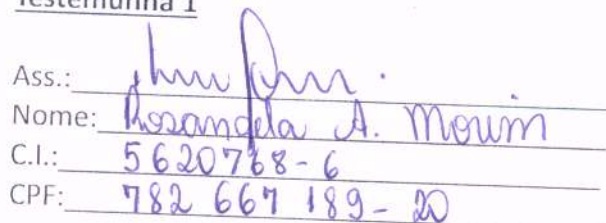 Testemunha 1
Ass.:
Nome: Rosangela A. Morim
C.I.: 5620768-6
CPF: 782 667 189-20